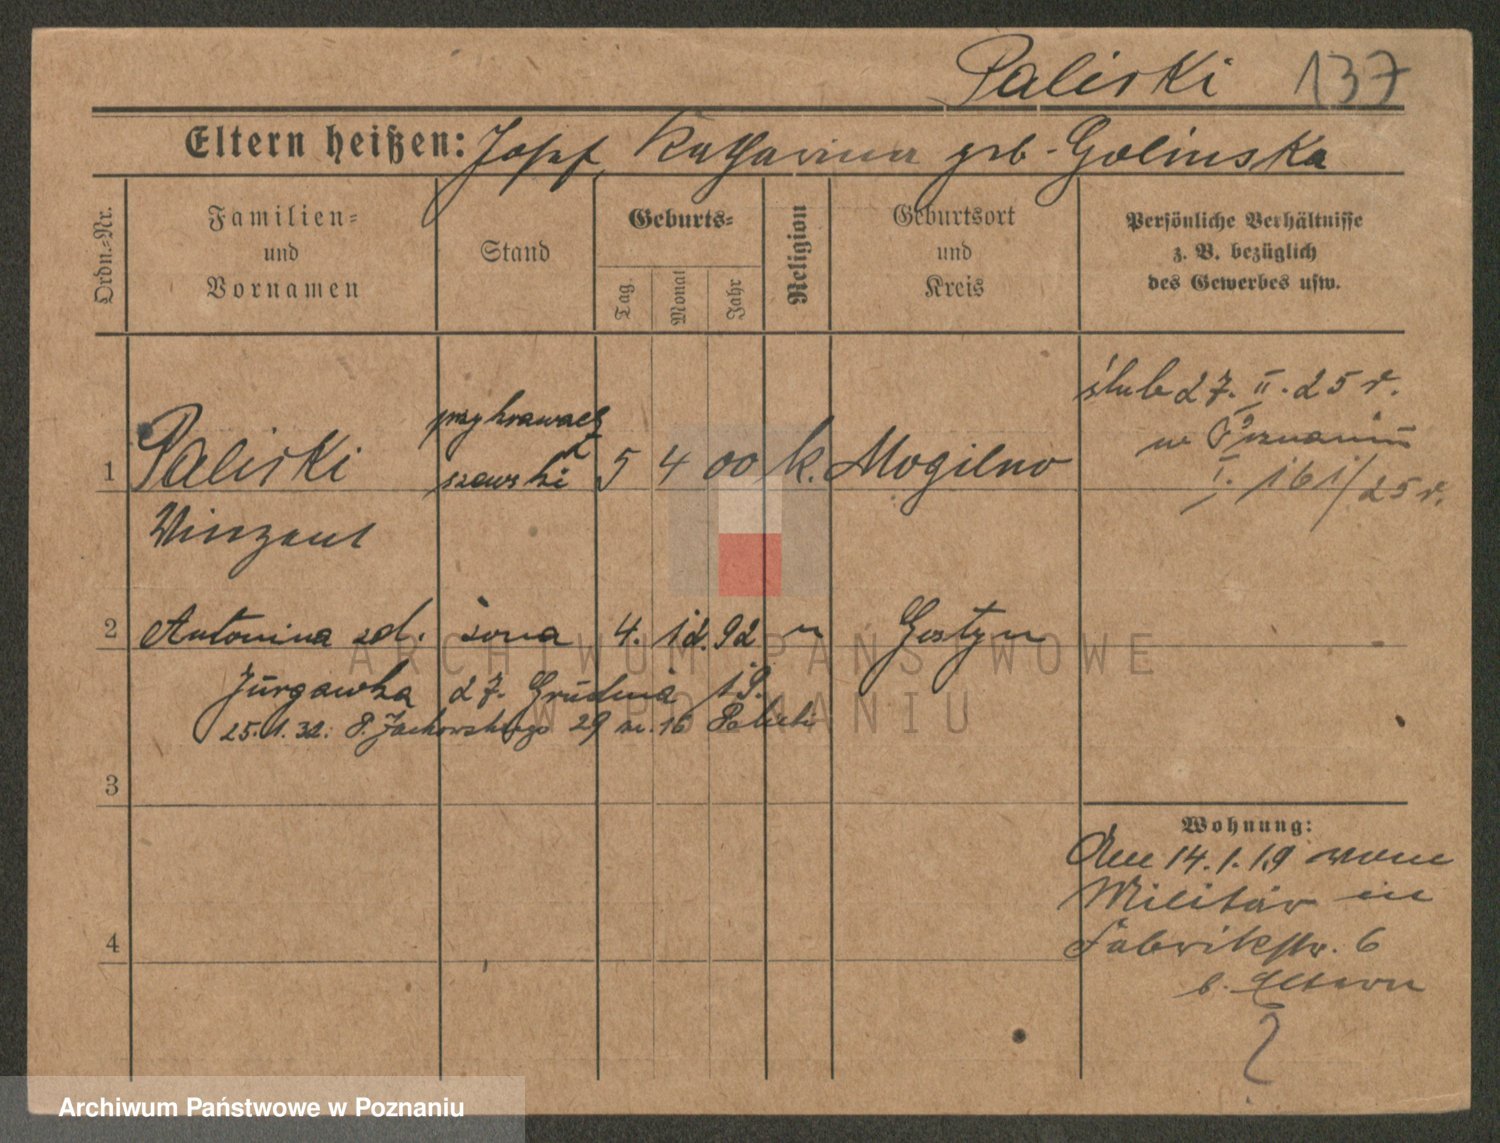 Paliski 137
Eltern heißen: Josef, Katharina geb. Golinska
Ordn.-Nr.
Familien-
und
Vornamen
Stand
Geburts-
Tag
Monat
Jahr
Religion
Geburtsort
und
Kreis
Persönliche Verhältnisse
z. B. bezüglich
des Gewerbes usw.
ślub 27. II. 25 r.
w Poznaniu
I. 161/25 r.
przykrawacz
1 Paliski szewski 5 4 00 k. Mogilno
Vinzent
2 Antonina zd. żona 4. 12. 92 " Gostyn
Jurgawka 27. Grudnia 19.
25.1.32: P. Jackowskiego 29 m. 16 Paliski
3
4
Wohnung:
Am 14.1.19 vom
Militär in
Fabrikstr. 6
b. Eltern
ARCHIWUM PAŃSTWOWE
W POZNANIU
Archiwum Państwowe w Poznaniu